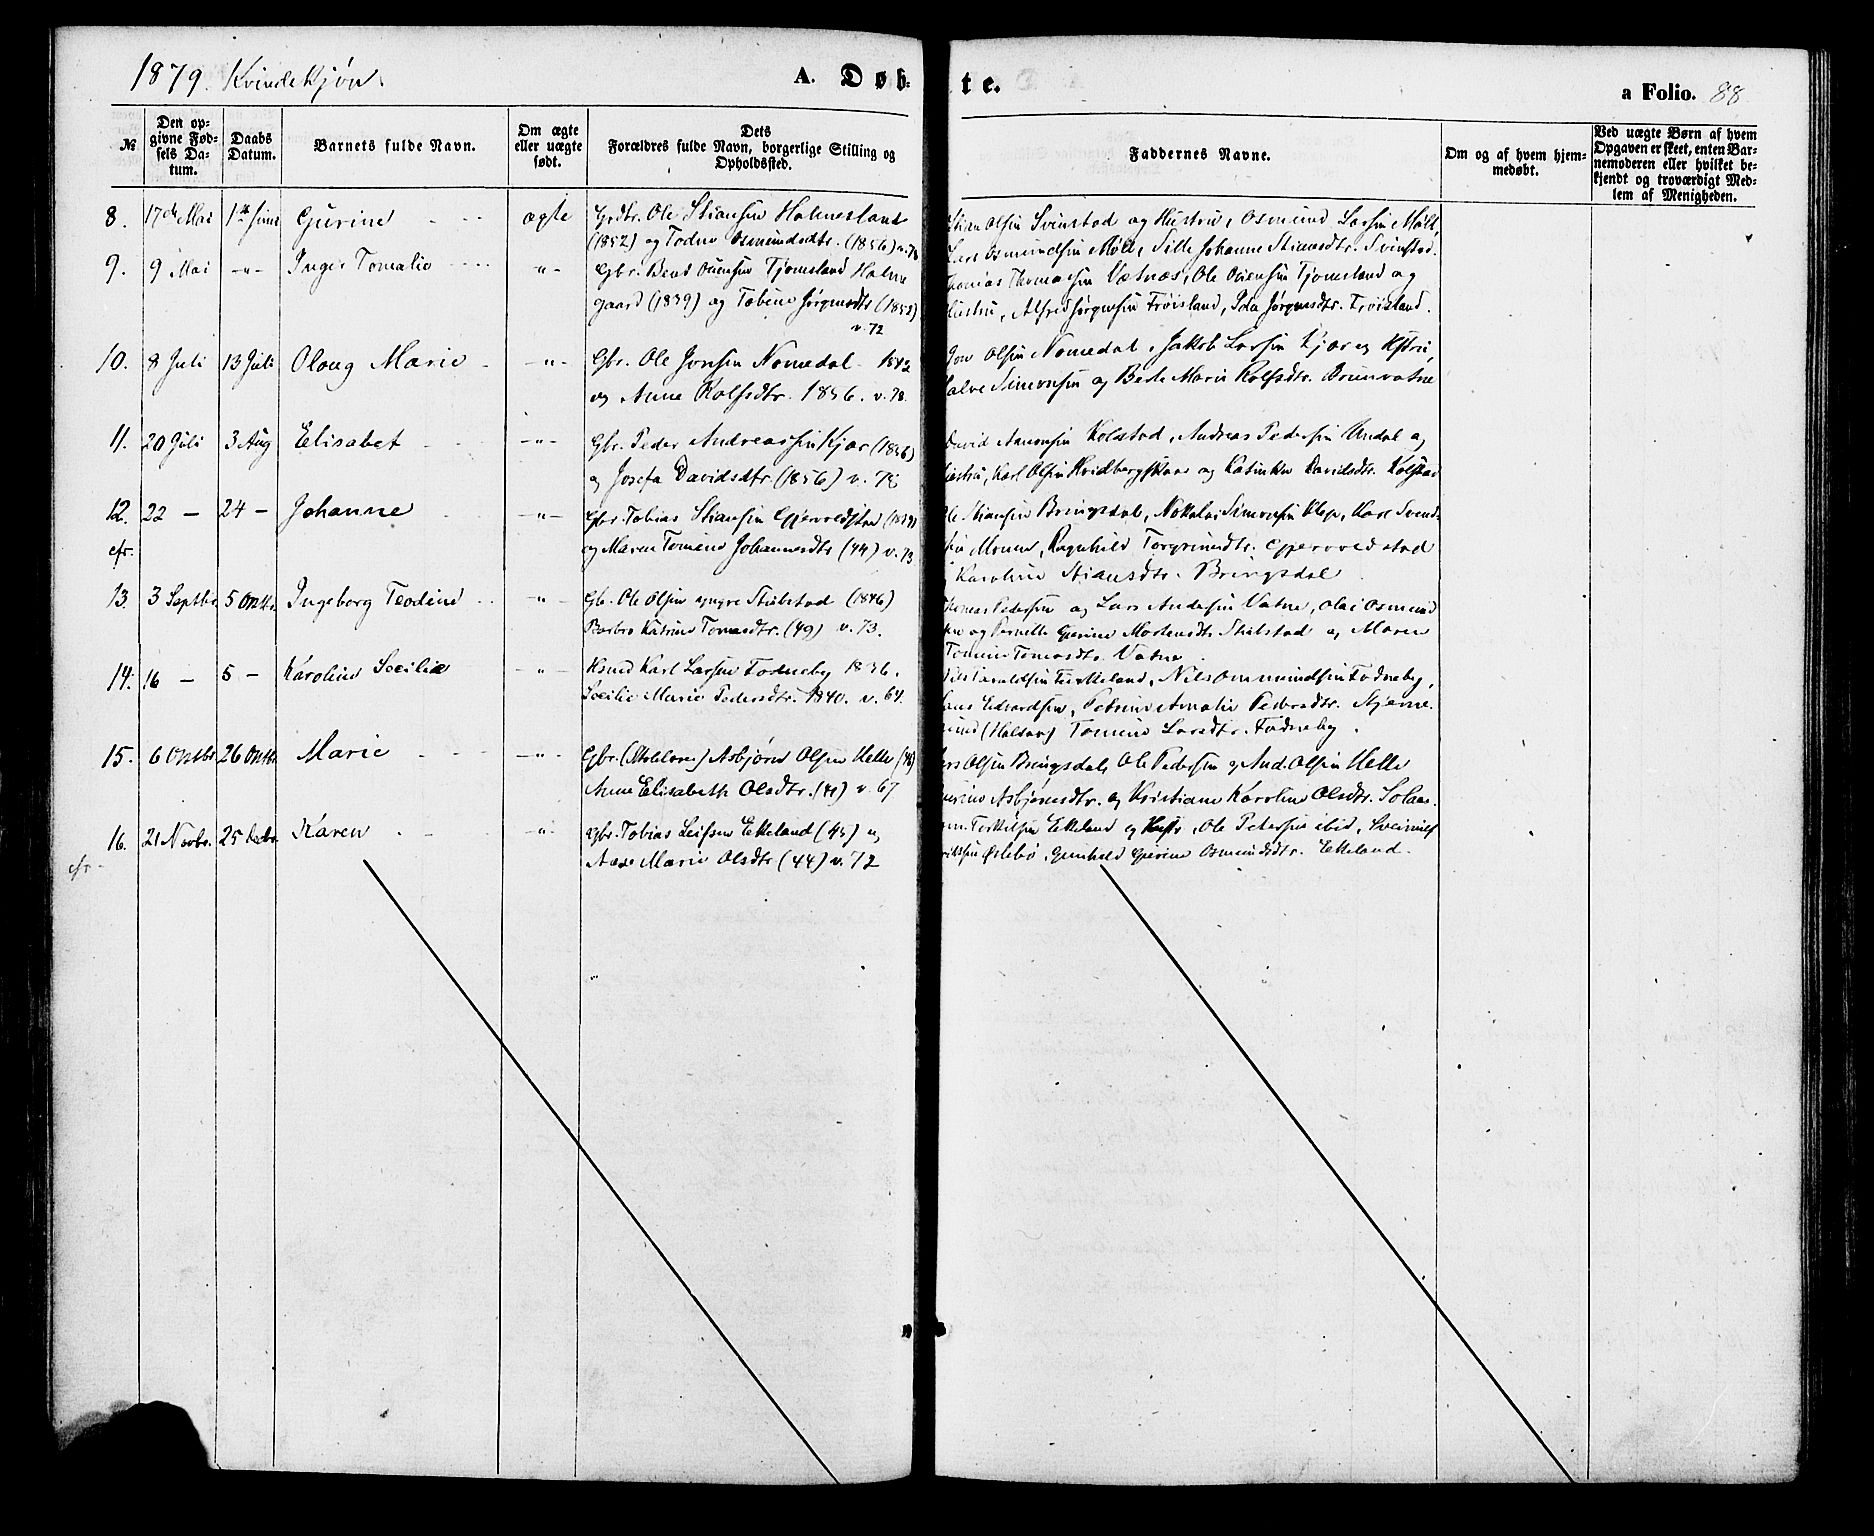 1879. Kvindekjøn.
A. Døb-
te.
a Folio. 88
№
Den op-
givne Fød-
sels Da-
tum.
Daabs
Datum.
Barnets fulde Navn.
Om ægte
eller uægte
født.
Dets
Forældres fulde Navn, borgerlige Stilling og
Opholdssted.
Faddernes Navne.
Om og af hvem hjem-
medøbt.
Ved uægte Børn af hvem
Opgaven er skeet, enten Bar-
nemoderen eller hvilket be-
kjendt og troværdigt Med-
lem af Menigheden.
8. 17de Mai 1ste Juni Gurine ægte Grdbr. Ole Stiansen Holmesland
(1852) og Osmundsdtr. (1856)
Olsen Svinstad og Hustru, Osmund Larsen Møll,
Osmundsen Møll, Sille Johanne Stiansdtr. Svinstad.
9. 9 Mai -"- Inger Tomalie -"- Gbr. Bent Tjomsland Holme
gaard (1839) og Tobine Jørgensdtr (1852)
v. 72
Thomas Thomassen Vatnøs, Ole Tjomsland og
Hustru, Alfred Jørgensen Frøisland, Jørgensdtr. Frøisland.
10. 8 Juli 13 Juli Olaug Marie -"- Gbr. Ole Jonsen Nomedal 1842
og Anne Rolfsdtr. 1856. v. 78.
Jon Olsen Nomedal, Jakob Larsen Kjær og Hstru,
Simonsen og Marie Rolfsdtr. Brunvatne
11. 20 Juli 3 Aug Elisabet -"- Gbr. Peder Andreassen Kjær (1856)
og Josefa Davidsdtr. (1856) v. 78
David Kolstad, Andreas Pedersen Undal og
Hustru, Karl Olsen og Katinka Davidsdtr. Kolstad
12. 22 - 24 - Johanne -"- Gbr. Tobias Stiansen Gjervoldstad
cfr. og Maren Tomine Johannesdtr (44) v. 73
Ole Stiansen Bringsdal, Nikolai Simonsen Klep, Karl Svend-
sen Monen, Ragnhild Torgrimsdtr. Gjervoldstad
Karoline Stiansdtr. Bringsdal
13. 3 Septbr. 5 Octbr. Ingeborg Teodine -"- Gb. Ole Olsen yngre Stubstad (1846)
Barbro Katrine Tomasdtr. (49) v. 73.
Thomas Pedersen og Lars Andersen Vatne, Olai Osmund
sen og Pernille Gurine Mortensdtr. Stubstad og Maren
Tomine Tomasdtr. Vatne
14. 16 - 5 - Karoline Secilie -"- Hsmd Karl Larsen Fodneby 1836.
Secilie Marie Pedersdtr. 1840. v. 64.
Nils Osmundsen Fodneby,
Edvardsen, Petrine Amalie Pedersdtr. Stjerne.
(Halsaa) Tomine Larsdtr. Fodneby.
15. 6 Octbr. 26 Octbr. Marie -"- Gbr. Asbjørn Olsen Helle
Anne Elisabeth Olsdtr. v. 67
Olsen Bringsdal, Ole Pedersen og And. Olsen Helle
Asbjørnsdtr. og Kristiane Karoline Olsdtr. Solaas.
16. 21 Novbr. 25 Decbr. Karen -"- Gbr. Tobias Leifsen Ekeland (45) og
cfr. Aase Marie Olsdtr (44) v. 72
Terkilsen Ekeland og Hustr, Ole Pedersen ibid,
Øslebø, Gunhild Gurine Osmundsdtr. Ekeland.